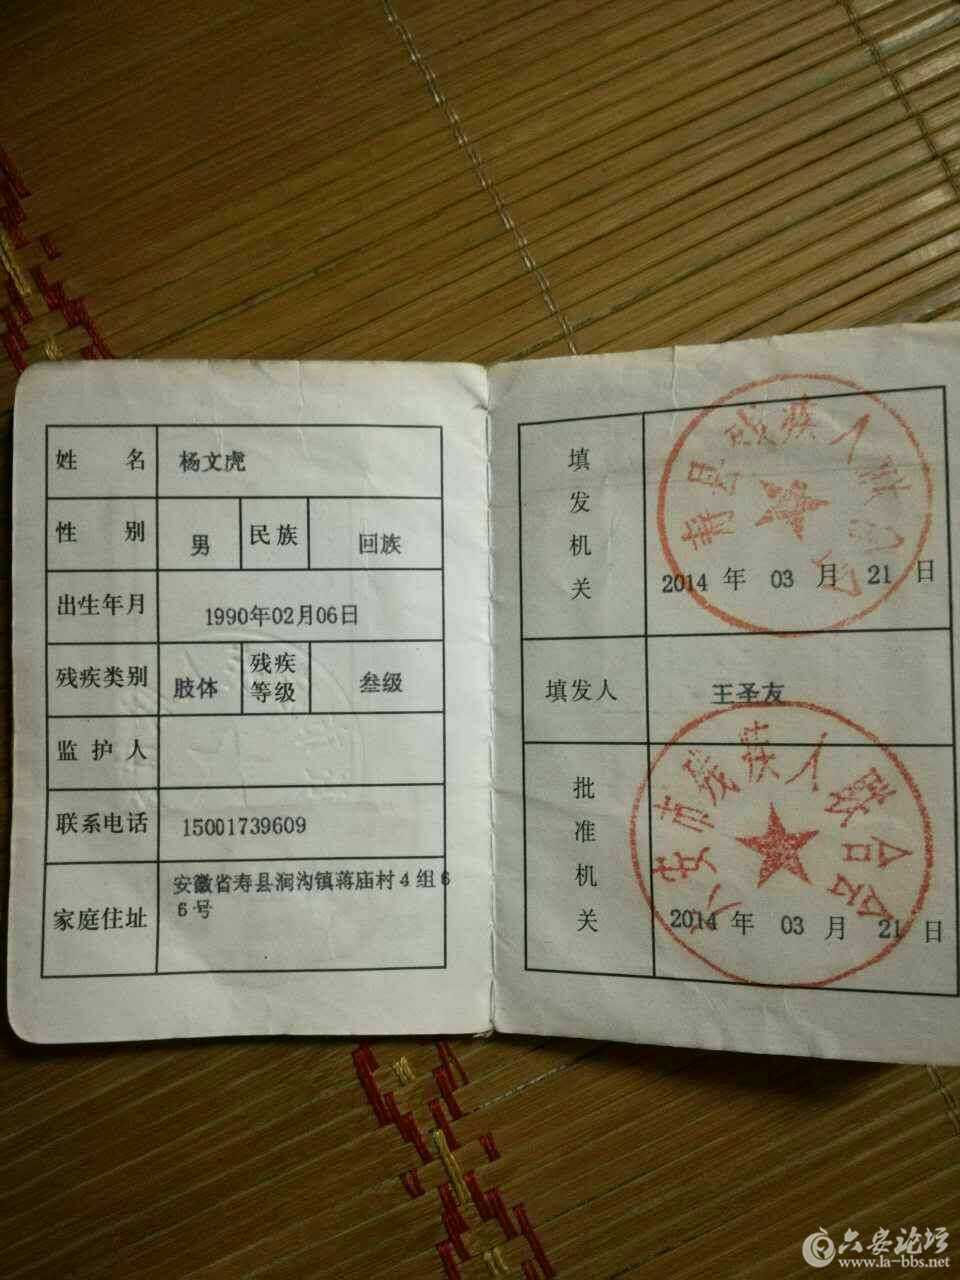 姓 名 杨文虎
性 别 男 民族 回族
出生年月 1990年02月06日
残疾类别 肢体 残疾等级 叁级
监护人
联系电话 15001739609
家庭住址 安徽省寿县涧沟镇蒋庙村4组6
6号
填发机关 2014年03月21日
寿县残疾人联合会
填发人 王圣友
批准机关 2014年03月21日
六安市残疾人联合会
六安论坛
www.la-bbs.net